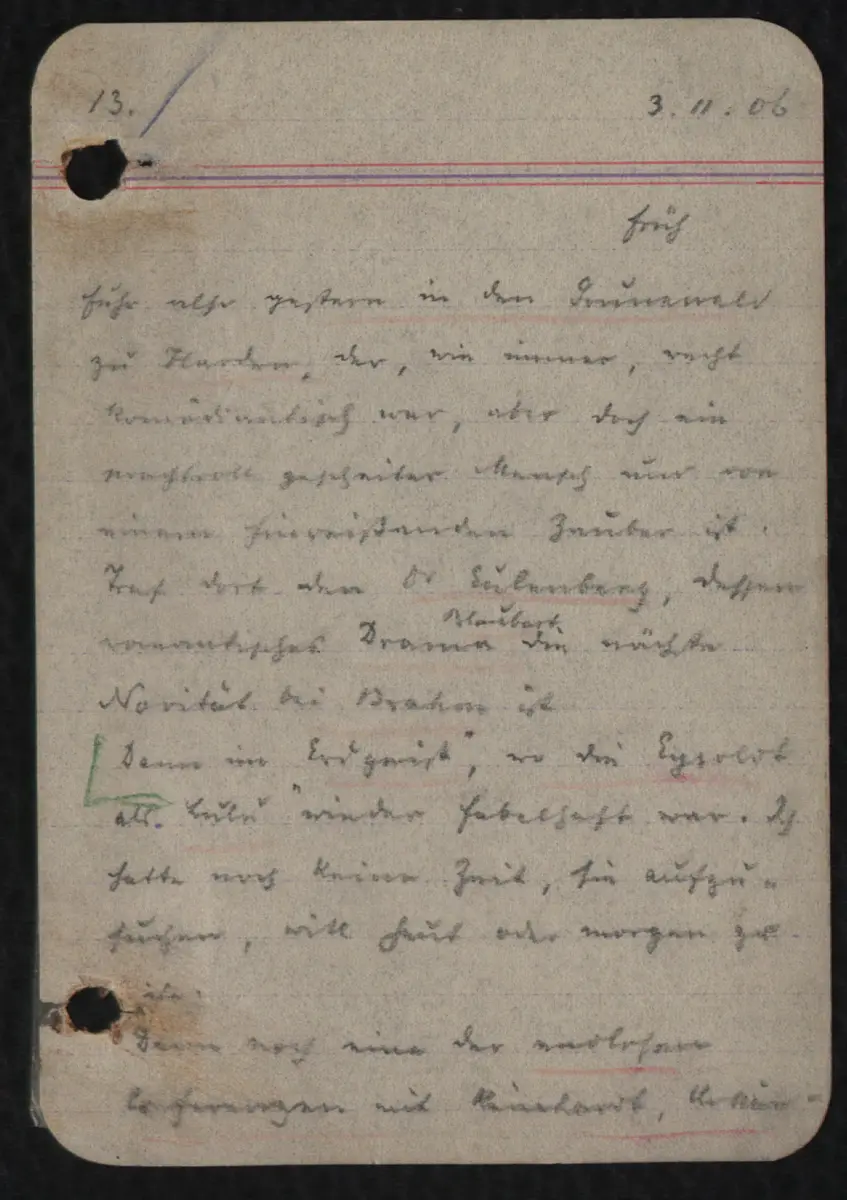 13.
3. 11. 06
früh
Fuhr also gestern in den Grunewald
zu Harden, der, wie immer, recht
komödiantisch war, aber doch ein
prachtvoll gescheiter Mensch und von
einem hinreißenden Zauber ist.
Traf dort den Dr Eulenberg, dessen
Blaubart
romantisches Drama die nächste
Novität bei Brahm ist
Dann im Erdgeist", wo die Eysoldt
als Lulu "wieder fabelhaft war. Ich
hatte noch keine Zeit, sie aufzu-
suchen, will heut oder morgen zu
ihr.
Dann noch eine der endlosen
Conferenzen mit Reinhardt,